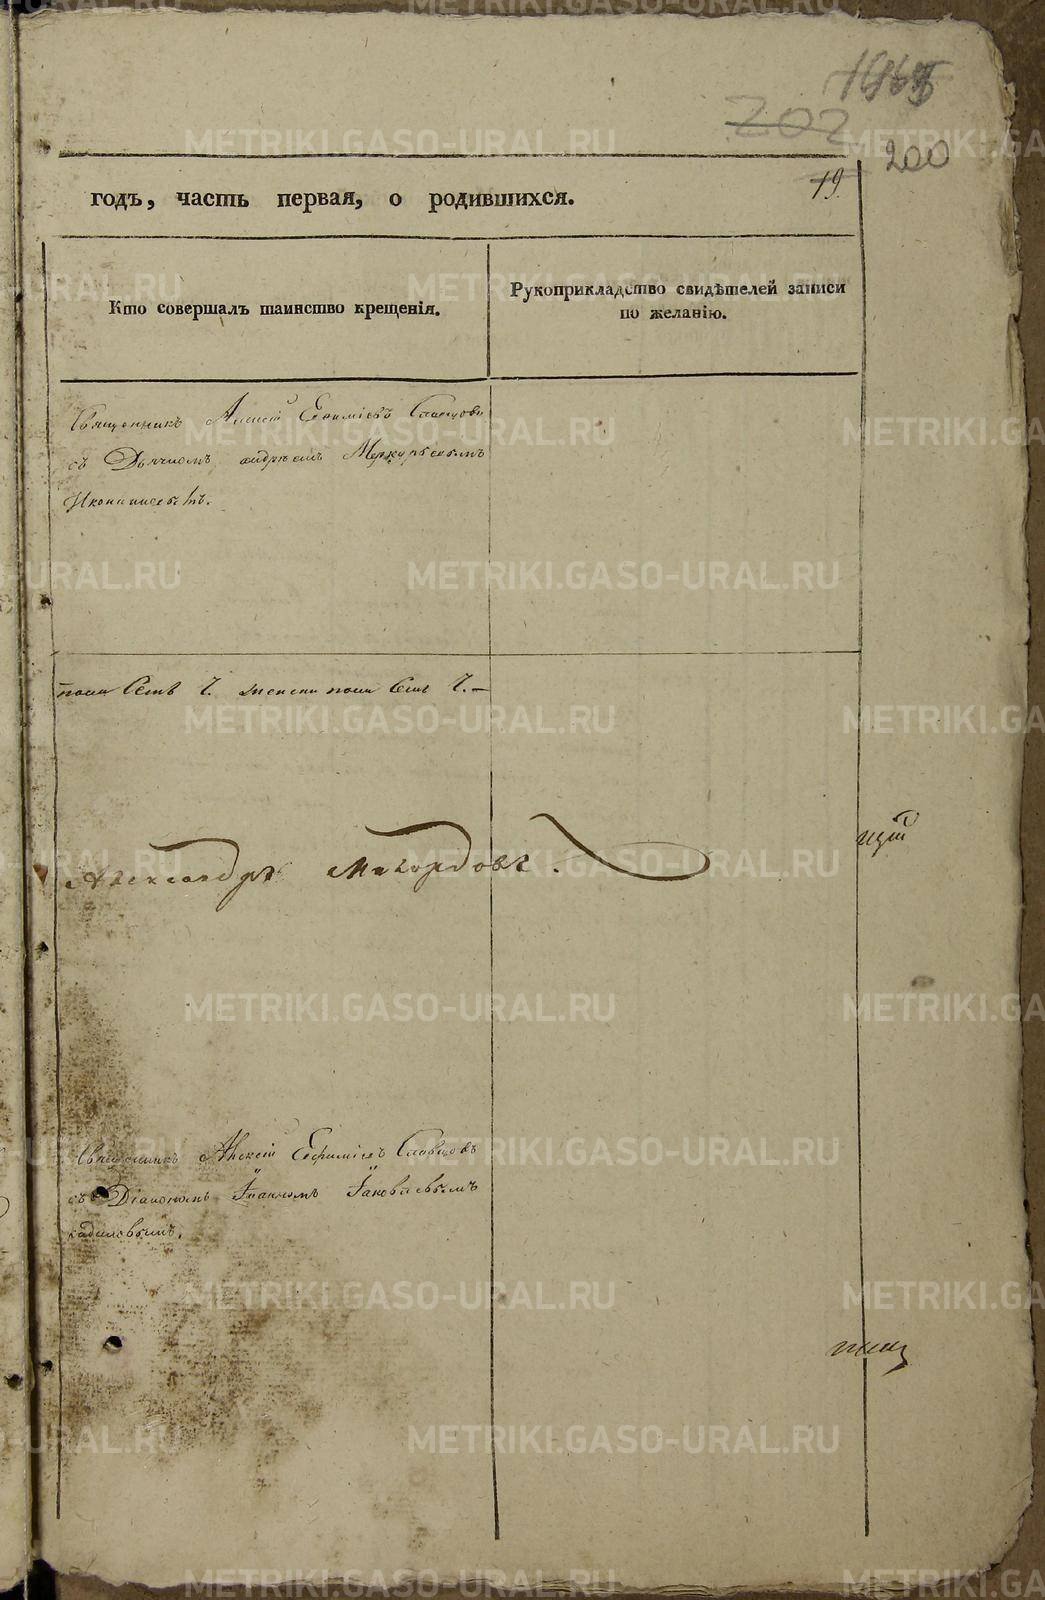 202
200
19.
годъ, часть первая, о родившихся.
Кто совершалъ таинство крещенія.
Рукоприкладство свидѣтелей записи
по желанію.
Священникъ Алексій Евфиміевъ Словцовъ
съ Дьячкомъ андреемъ Меркурьевымъ
пола Семь 7. женска пола Семь 7.
Александръ
Священникъ Алексій Евфиміевъ Словцовъ
съ Діакономъ Іоанномъ Іаковлевымъ
кадиловымъ.
METRIKI.GASO-URAL.RU